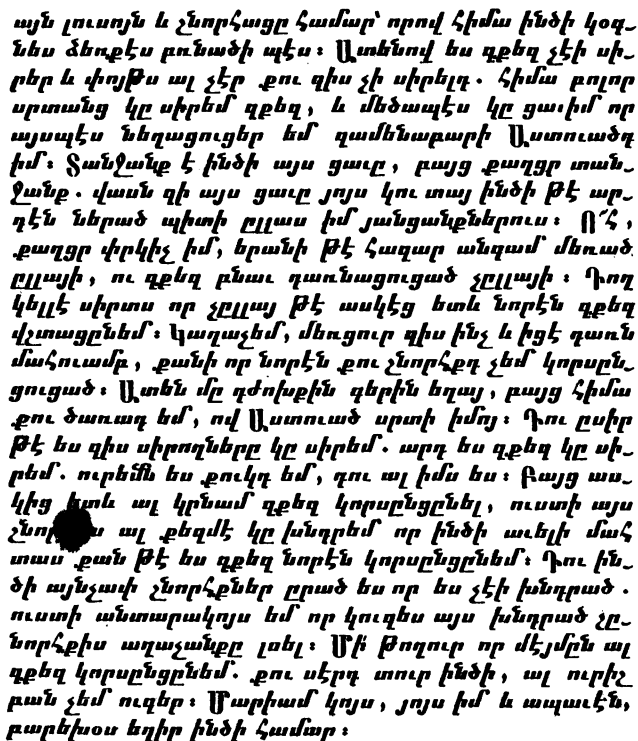 այն լուսոյն և շնորհացը համար՝ որով հիմա ինծի կօգ֊
նես ձեռքէս բռնածի պէս ։ Ատենով ես զքեզ չէի սի֊
րեր և փոյթս ալ չէր քու զիս չի սիրելդ . հիմա բոլոր
սրտանց կը սիրեմ զքեզ , և մեծապէս կը ցաւիմ որ
այսպէս նեղացուցեր եմ զամենաբարի Աստուածդ
իմ ։ Տանջանք է ինծի այս ցաւը , բայց քաղցր տան֊
ջանք . վասն զի այս ցաւը յոյս կու տայ ինծի թէ ար֊
դէն ներած պիտի ըլլաս իմ յանցանքներուս ։ Ո՜հ ,
քաղցր փրկիչ իմ , երանի թէ հազար անգամ մեռած
ըլլայի , ու զքեզ բնաւ դառնացուցած չըլլայի ։ Դող
կելլէ սիրտս որ չըլլայ թէ ասկէց ետև նորէն զքեզ
վշտացընեմ ։ Կաղաչեմ , մեռցուր զիս ինչ և իցէ դառն
մահուամբ , քանի որ նորէն քու շնորհքդ չեմ կորսըն֊
ցուցած ։ Ատեն մը դժոխքին գերին եղայ , բայց հիմա
քու ծառադ եմ , ով Աստուած սրտի իմոյ ։ Դու ըսիր
թէ ես զիս սիրողները կը սիրեմ . արդ ես զքեզ կը սի֊
րեմ . ուրեմն ես քուկդ եմ , դու ալ իմս ես ։ Բայց աս֊
կից ետև ալ կրնամ զքեզ կորսընցընել , ուստի այս
շնորհքս ալ քեզմէ կը խնդրեմ որ ինծի աւելի մահ
տաս քան թէ ես զքեզ նորէն կորսընցընեմ ։ Դու ին֊
ծի այնչափ շնորհքներ ըրած ես որ ես չէի խնդրած .
ուստի անտարակոյս եմ որ կուզես այս խնդրած շը֊
նորհքիս աղաչանքը լսել ։ Մի՛ թողուր որ մէյմըն ալ
զքեզ կորսընցընեմ . քու սէրդ տուր ինծի , ալ ուրիշ
բան չեմ ուզեր ։ Մարիամ կոյս , յոյս իմ և ապաւէն ,
բարեխօս եղիր ինծի համար ։